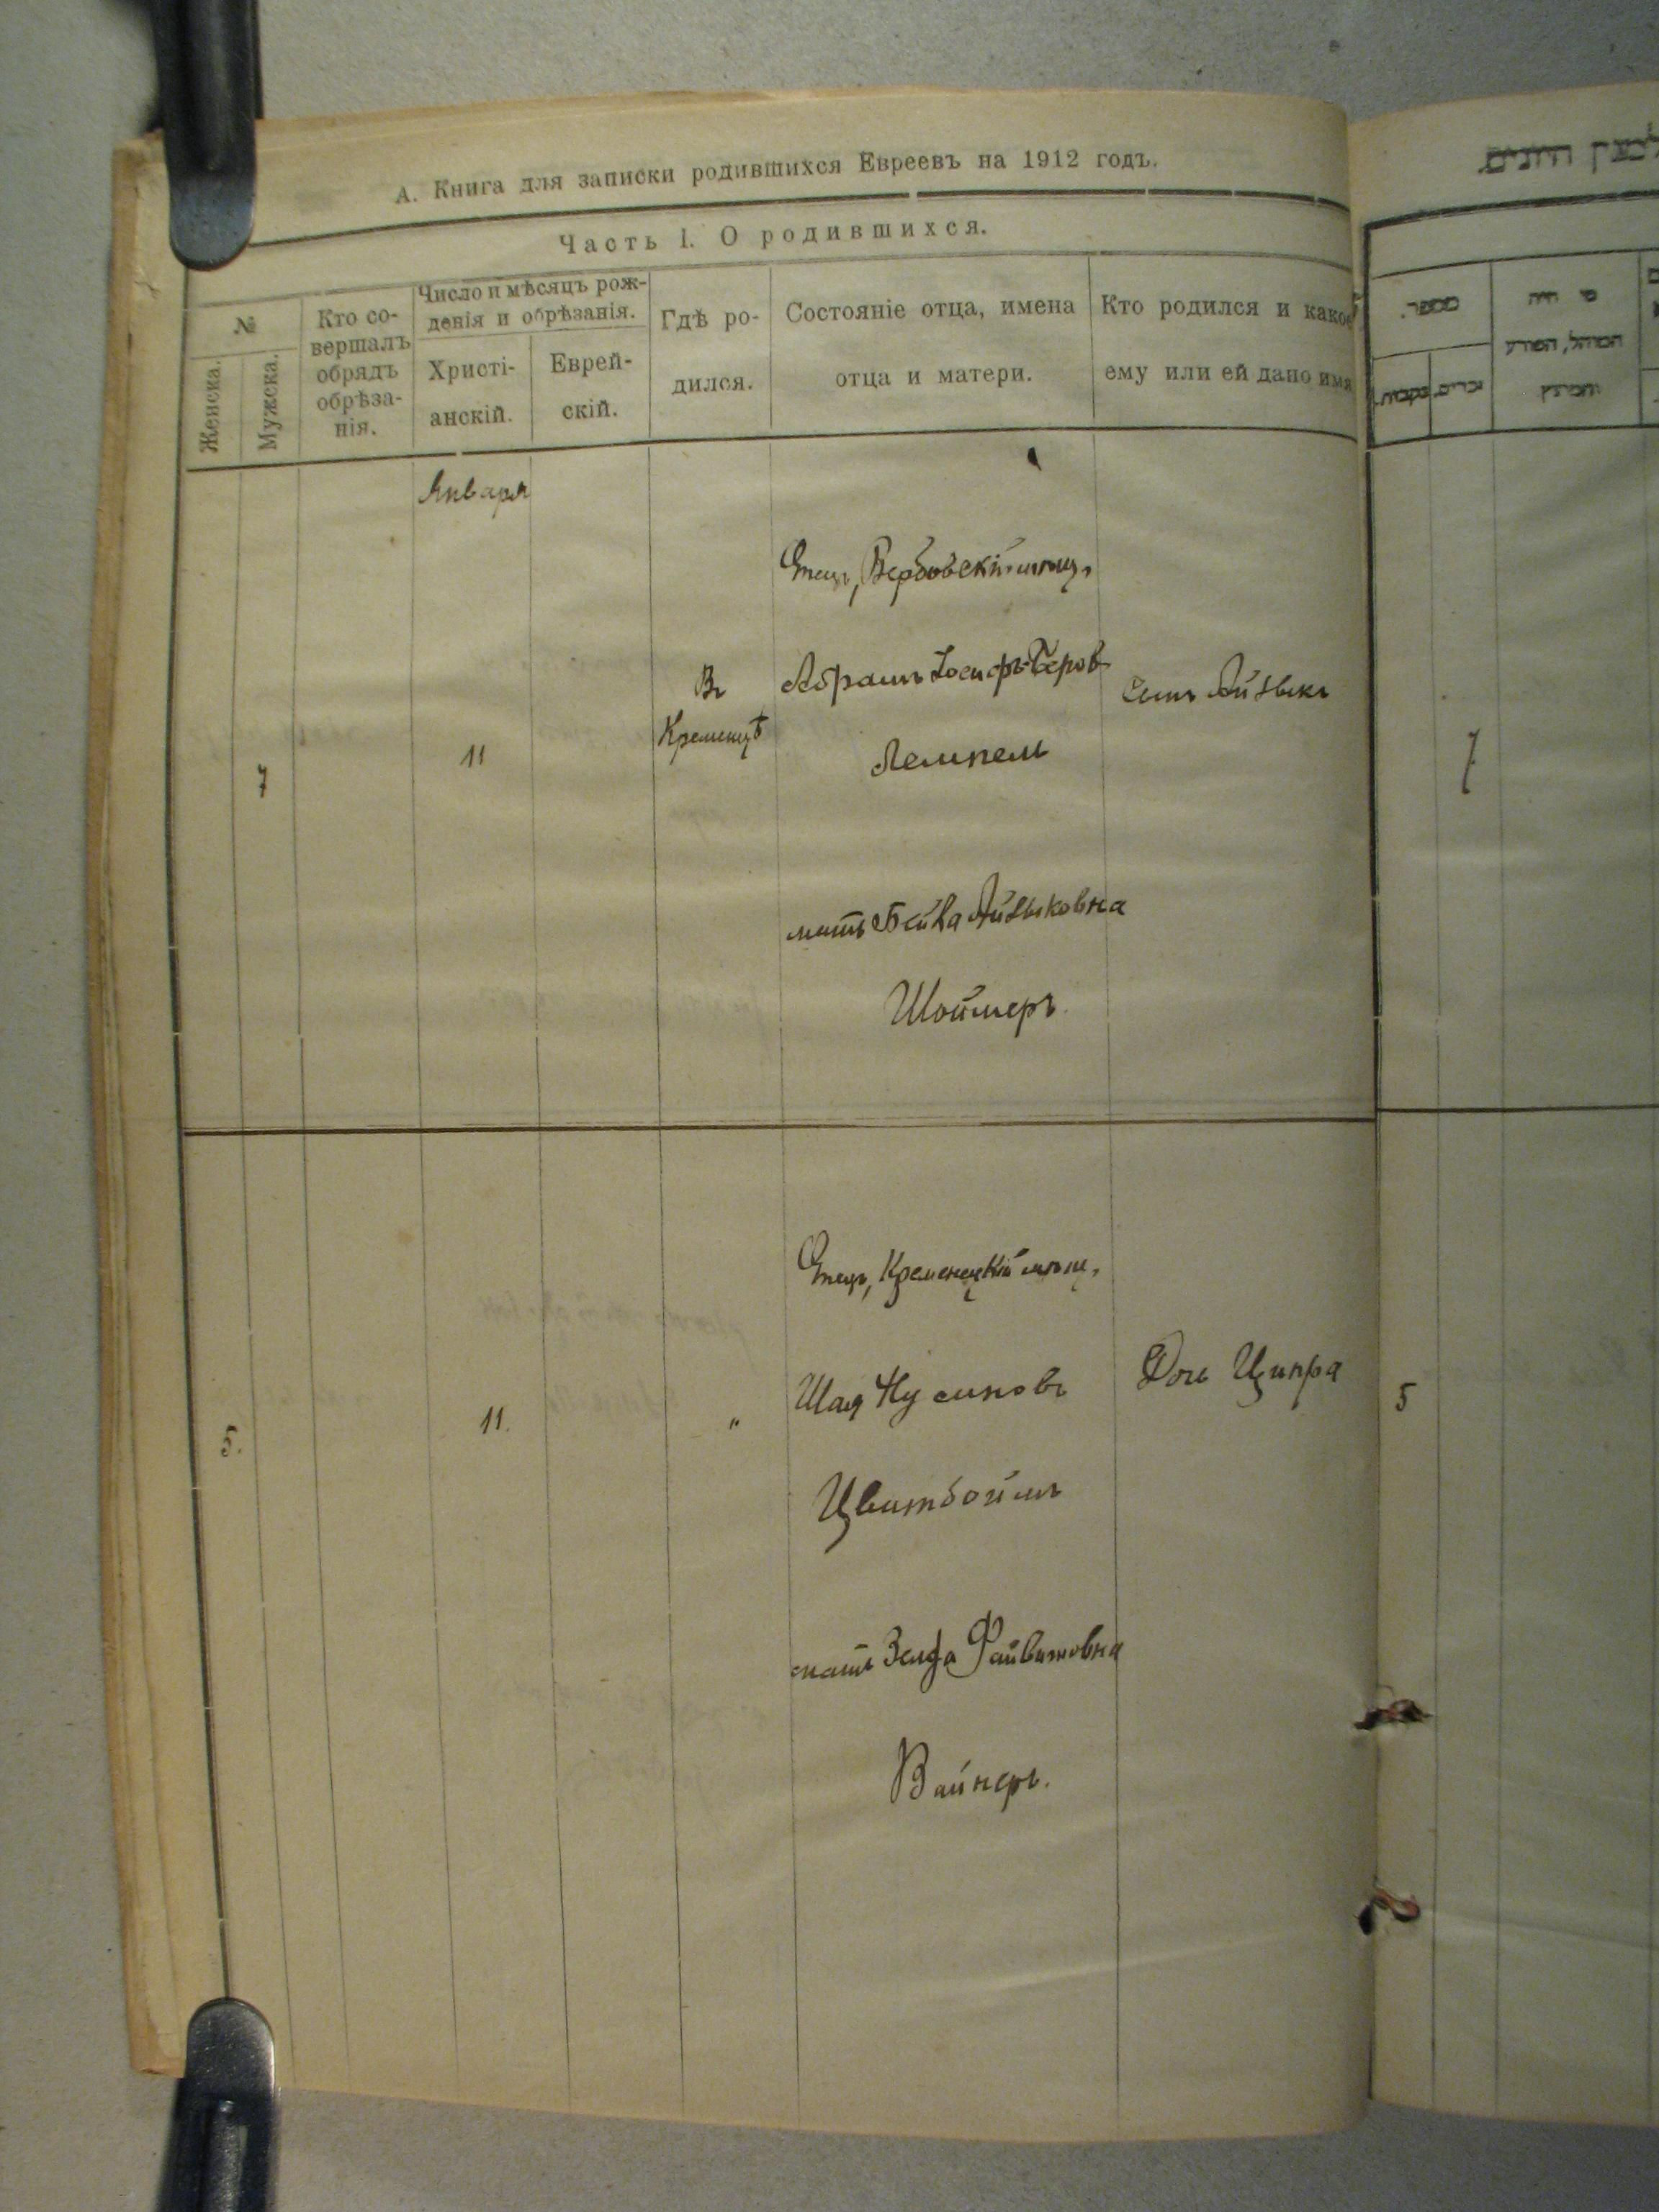 А. Книга для записки родившихся Евреевъ на 1912 годъ.
Часть I. О родившихся.
№
Женска.
Мужска.
Кто со-
вершалъ
обрядъ
обрѣза-
нія.
Число и мѣсяцъ рож-
денія и обрѣзанія.
Христі-
анскій.
Еврей-
скій.
Гдѣ ро-
дился.
Состояніе отца, имена
отца и матери.
Кто родился и какое
ему или ей дано имя
Января
7
11
Въ
Кременцѣ
Отецъ, Вербовскій мѣщ.
Абрамъ Іосифъ-Беровъ
Лемпель
мать Бейла Айзыковна
Шоймеръ.
Сынъ Айзыкъ
5.
11.
"
Отецъ, Кременецкій мѣщ.
Шая Нусиновъ
Цвитбоймъ
мать Зелда Файвишовна
Вайнеръ.
Дочь Ципра
מספר.
נקבות.
זכרים.
מי היה
המוהל, הפורע
והמוצץ
7
5